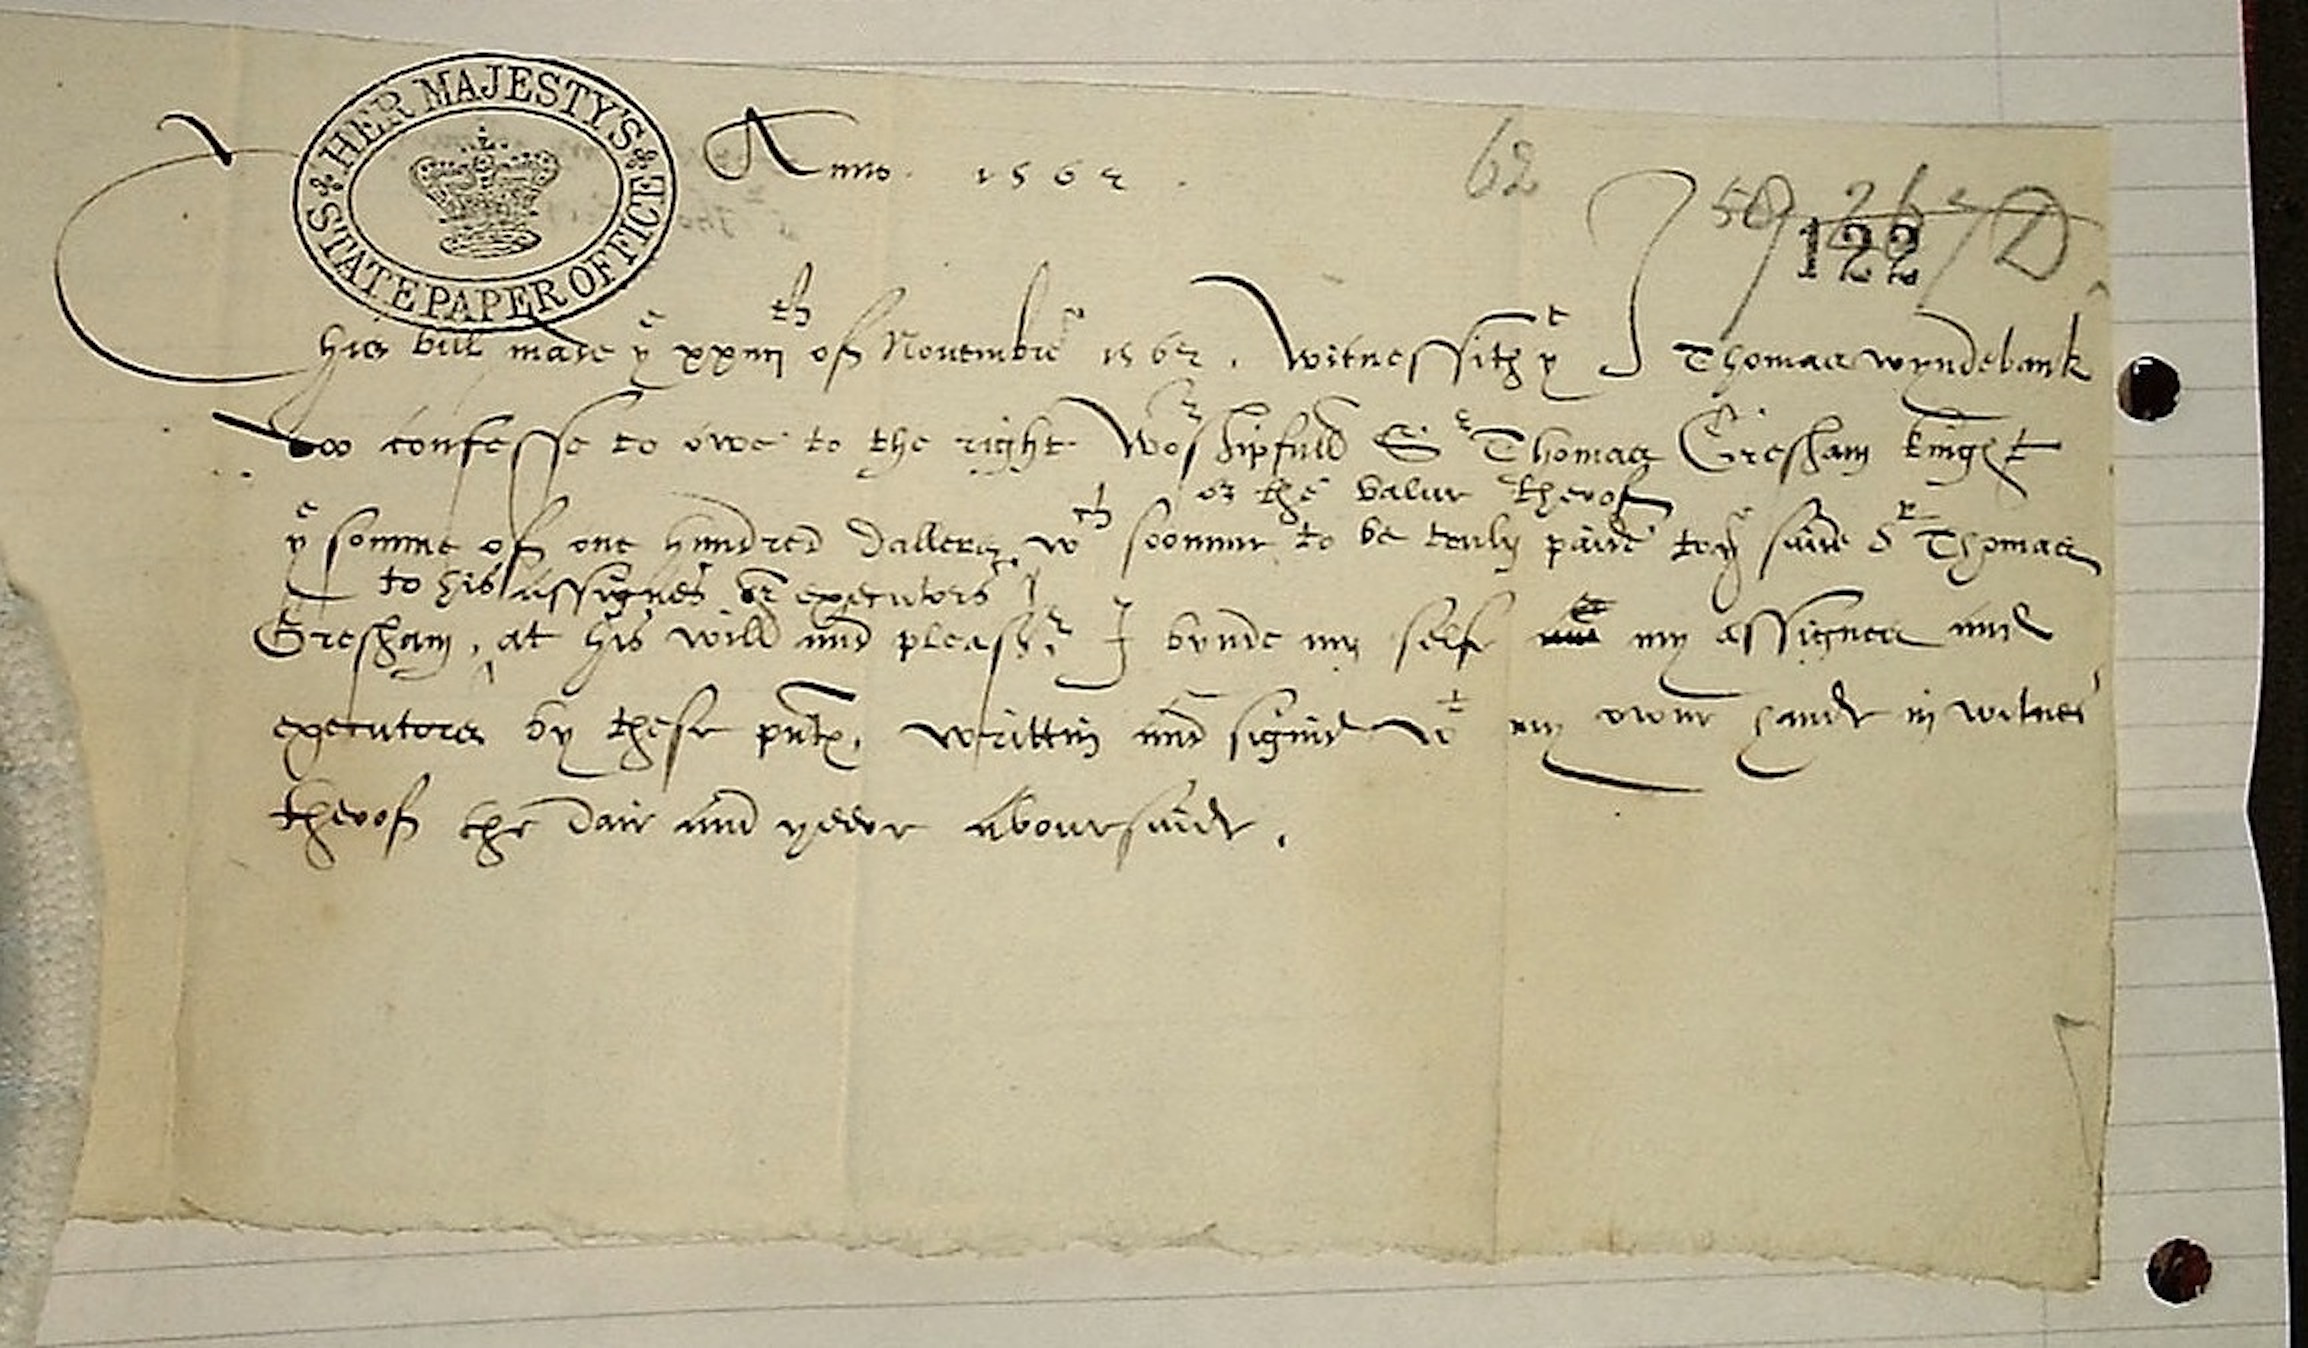 HER MAJESTY'S
STATE PAPER OFFICE
Anno. 1562.
62
59
122
This bill made yᵉ xxiiijᵗʰ of Novembre 1562. witnessith yᵉ I Thomas wyndebank
doo confesse to owe to the right Worshipfull Sʳ Thomas Gresham knight
or the valur therof
yᵉ somme of one hundred dallers, wᶜʰ somme to be truly paide to yᵉ saide Sʳ Thomas
to his assignes or executors
Gresham, at his will and pleasʳ. I bynde my self my assignes and
executors by these pntꝭ, writtin and signid wᵗ my owne hande in witnes
therof the daie and yeere abovesaide.